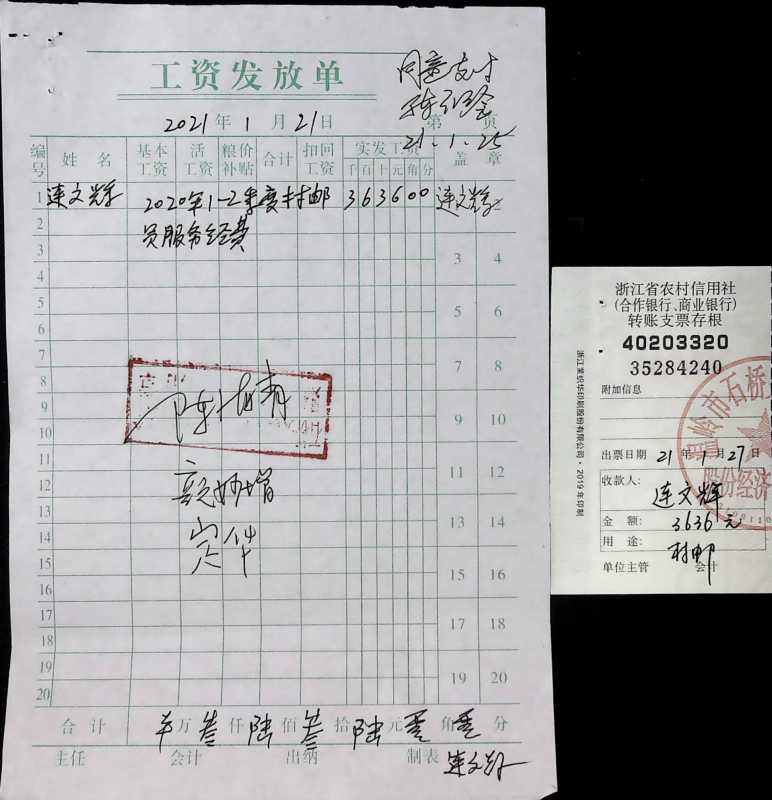 工资发放单
同意支付
21.1.25
2021年1月21日
第 页
编号 姓名 基本工资 活工资 粮价补贴 合计 扣回工资 实发工资 盖章
千 百 十 元 角 分
1 连文辉 2020年1-2季度村邮 3 6 3 6 0 0 连文辉
2 员服务经费
3 3 4
4
5 5 6
6
7 7 8
8
9 9 10
10
11 11 12
12
13 13 14
14
15 15 16
16
17 17 18
18
19 19 20
20
合计 万叁仟陆佰叁拾陆元零角零分
主任 会计 出纳 制表 连文辉
浙江省农村信用社
(合作银行、商业银行)
转账支票存根
40203320
35284240
附加信息
出票日期 21年1月27日
收款人:
连文辉
金额: 3636元
用途: 村邮
单位主管 会计
温岭市石桥
股份经济
2019年印制